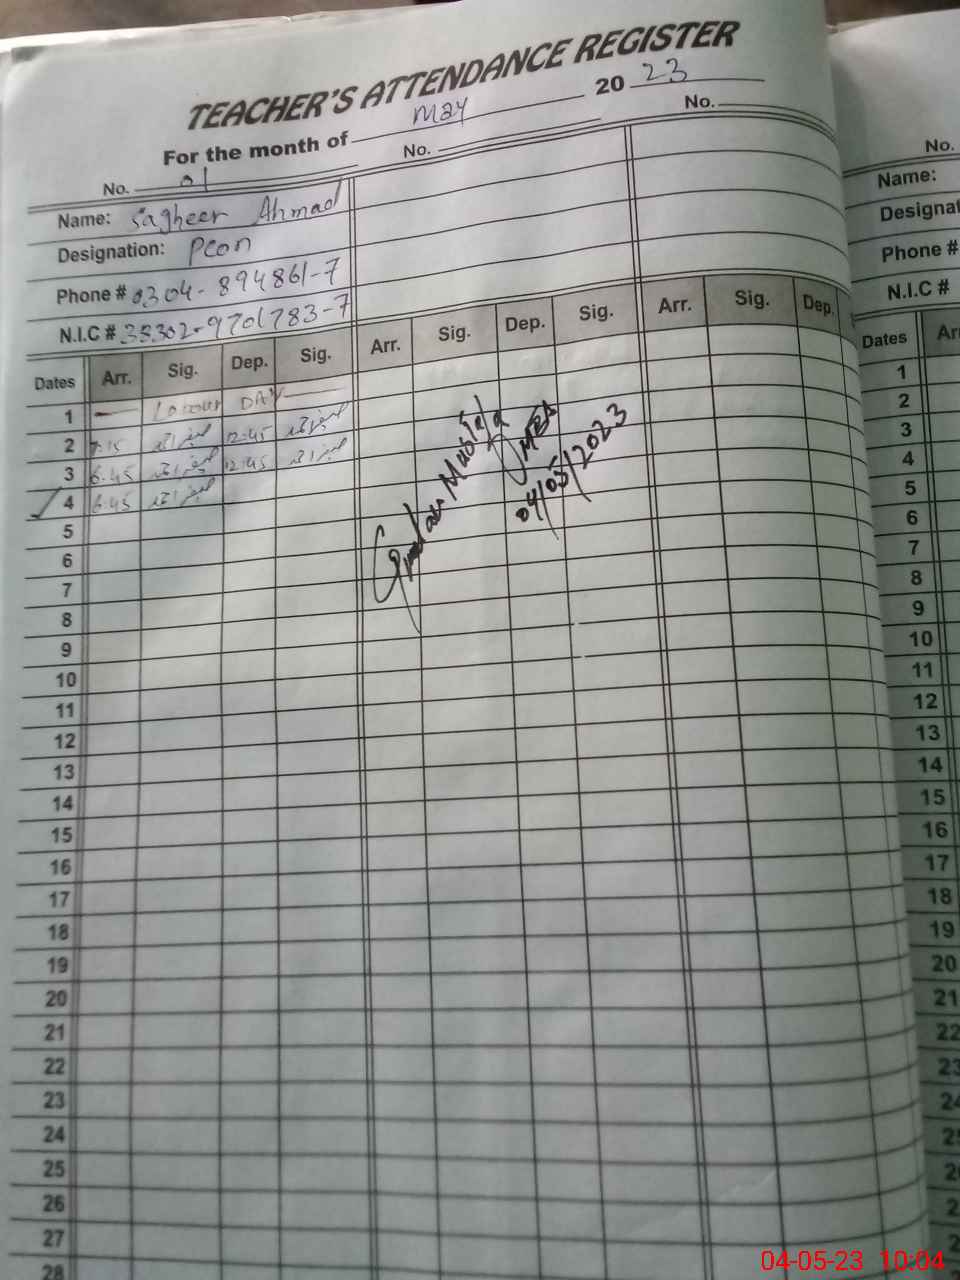 TEACHER'S ATTENDANCE REGISTER
For the month of May 2023
No. 01 No. No.
Name: Sagheer Ahmad
Designation: Peon
Phone # 0304-894861-7
N.I.C # 35302-9701783-7
Dates Arr. Sig. Dep. Sig. Arr. Sig. Dep. Sig. Arr. Sig. Dep.
1 Labour DAY
2 7:15 صغیر احمد 12:45 صغیر احمد
3 6:45 صغیر احمد 12:45 صغیر احمد
4 6:45 صغیر احمد
5
6
7
8
9
10
11
12
13
14
15
16
17
18
19
20
21
22
23
24
25
26
27
28
Ghulam Mustafa
MEA
04/05/2023
No.
Name:
Phone #
N.I.C #
Dates
1
2
3
4
5
6
7
8
9
10
11
12
13
14
15
16
17
18
19
20
21
22
23
04-05-23 10:04